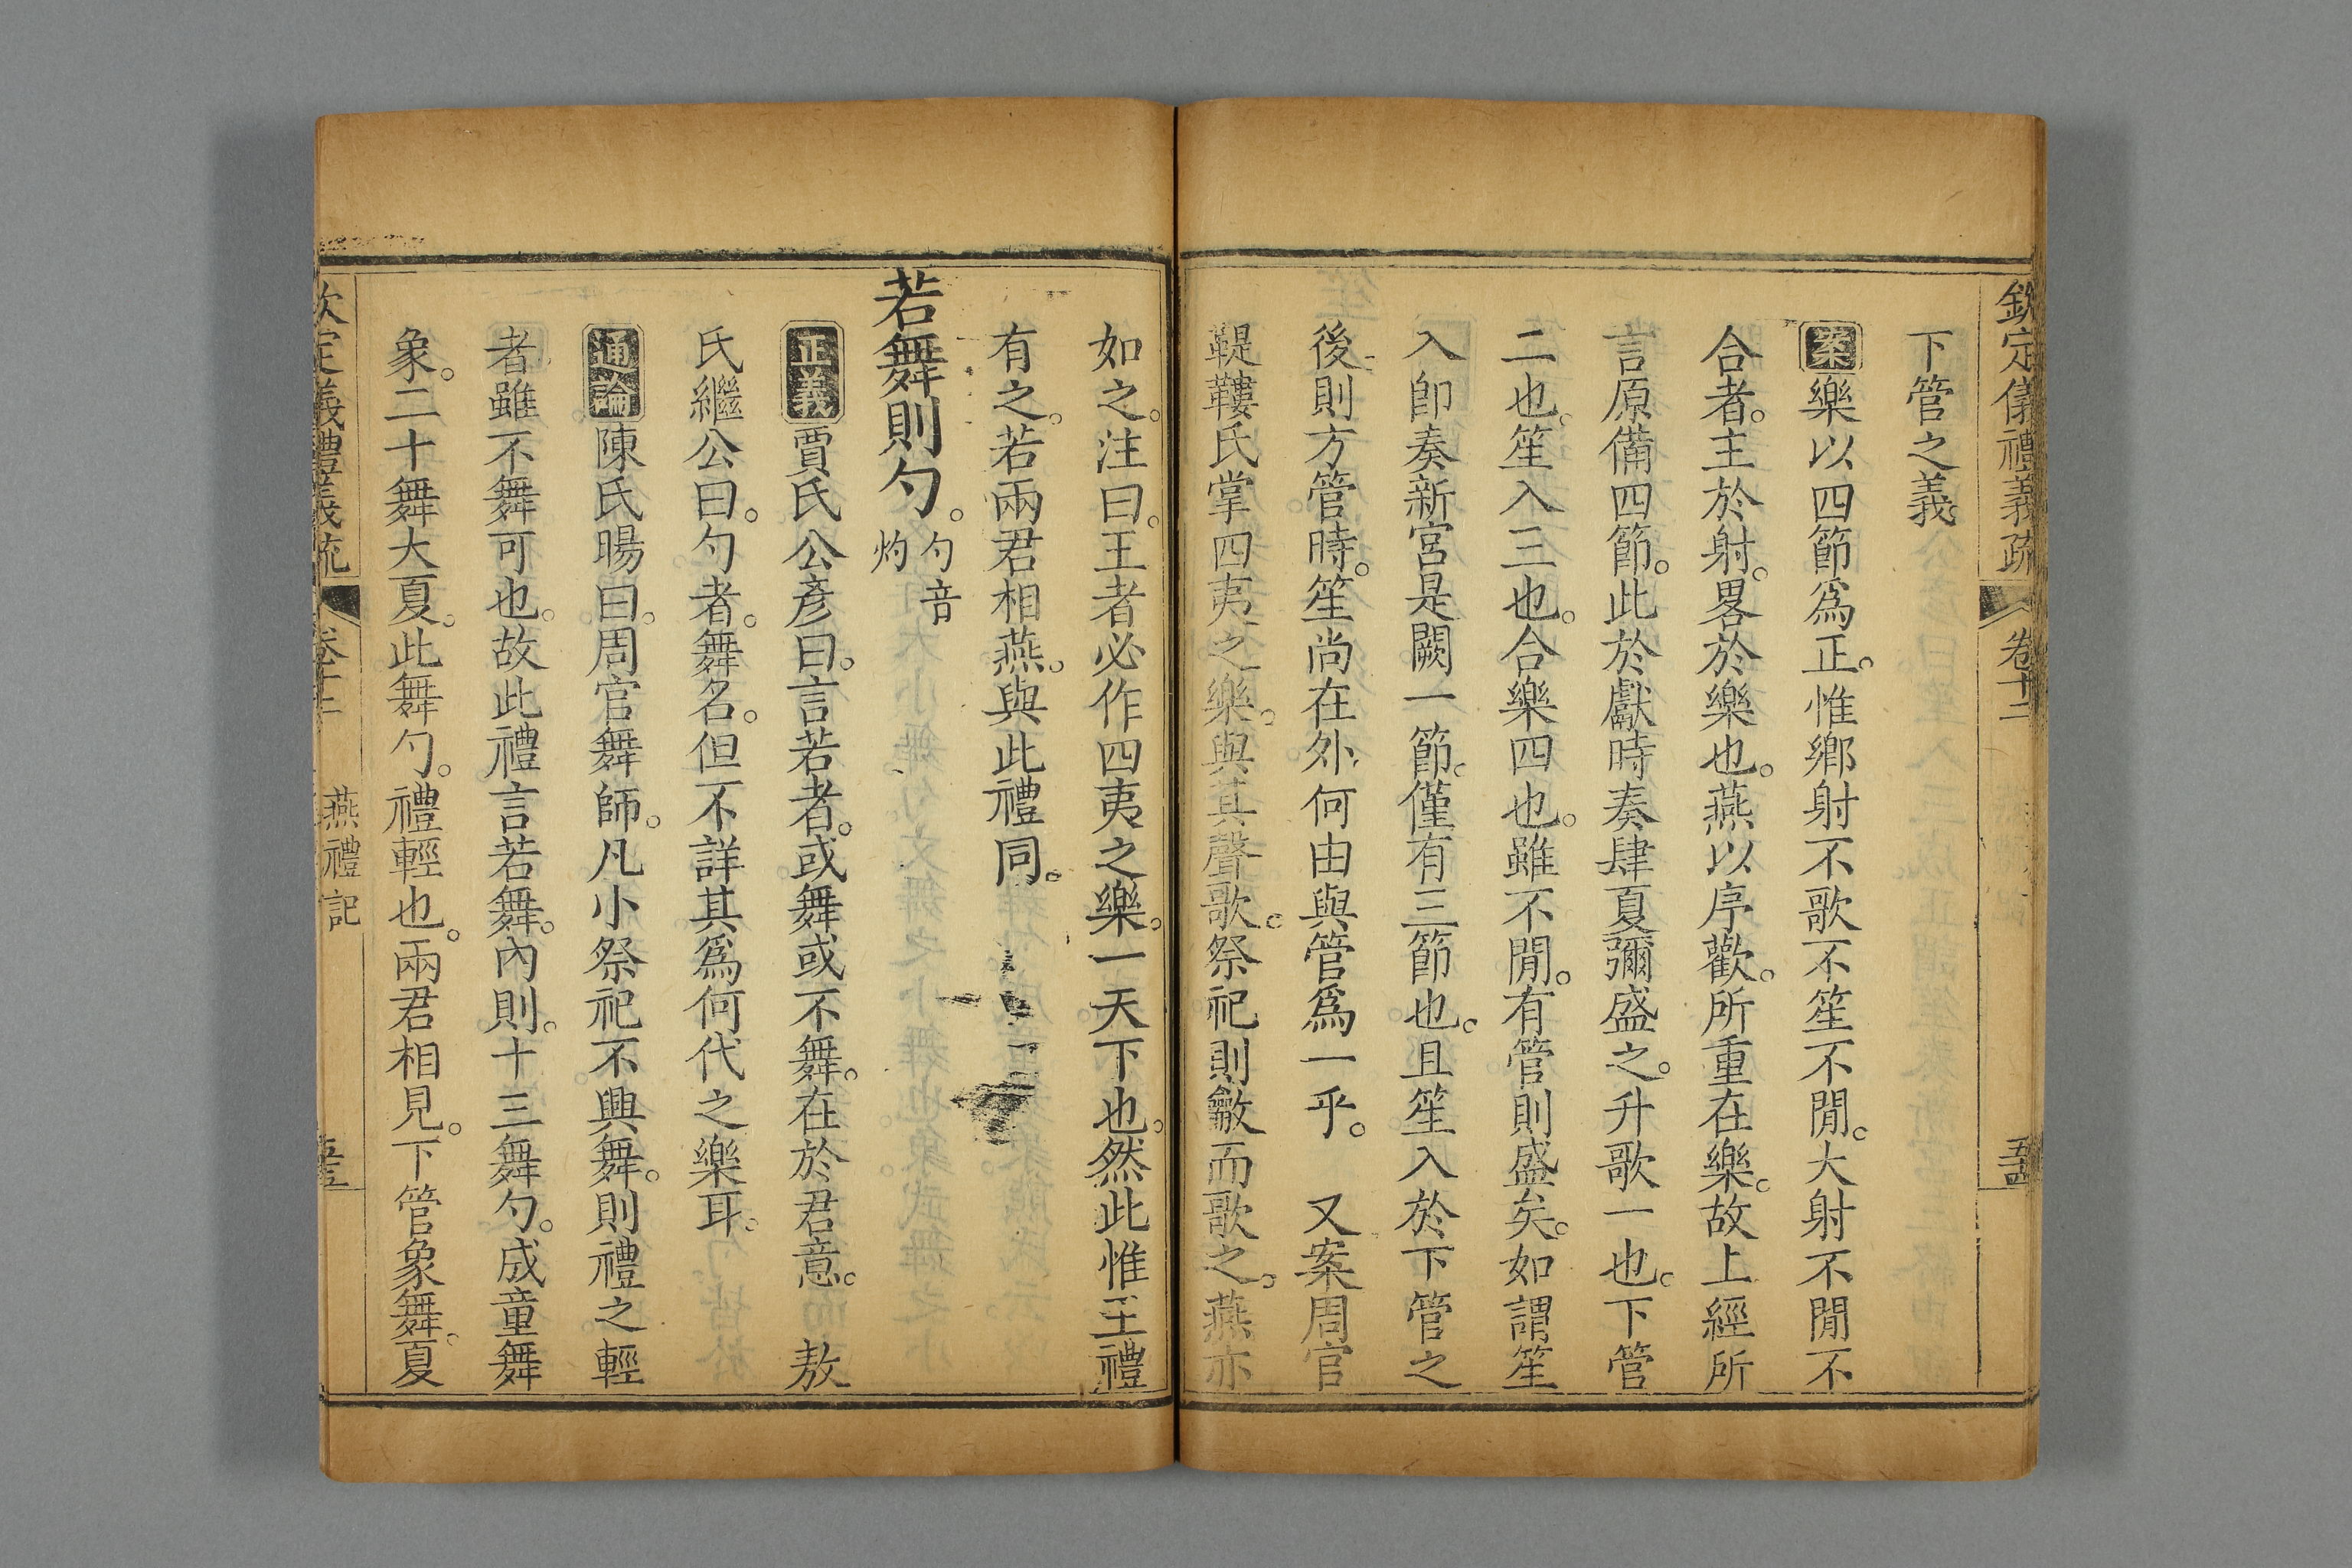 欽定儀禮義疏 卷十二 
下管之義。
案樂以四節爲正。惟鄉射不歌不笙不閒。大射不閒不
合者。主於射。畧於樂也。燕以序歡。所重在樂。故上經所
言原備四節。此於獻時奏肆夏彌盛之。升歌一也。下管
二也。笙入三也。合樂四也。雖不閒。有管則盛矣。如謂笙
入卽奏新宮是闕一節。僅有三節也。且笙入於下管之
後則方管時。笙尚在外何由與管爲一乎。 又案周官
鞮鞻氏掌四夷之樂。與其聲歌。祭祀則龡而歌之。燕亦
如之。注曰。王者必作四夷之樂。一天下也。然此惟王禮
有之。若兩君相燕。與此禮同。
若舞則勺。勺音灼
正義賈氏公彥曰。言若者。或舞或不舞。在於君意。 敖
氏繼公曰。勺者。舞名。但不詳其爲何代之樂耳。
通論陳氏暘曰。周官舞師。凡小祭祀不興舞。則禮之輕
者雖不舞可也。故此禮言若舞。內則。十三舞勺。成童舞
象。二十舞大夏。此舞勺。禮輕也。兩君相見。下管象舞。夏
欽定義禮義疏 卷十二 燕禮記